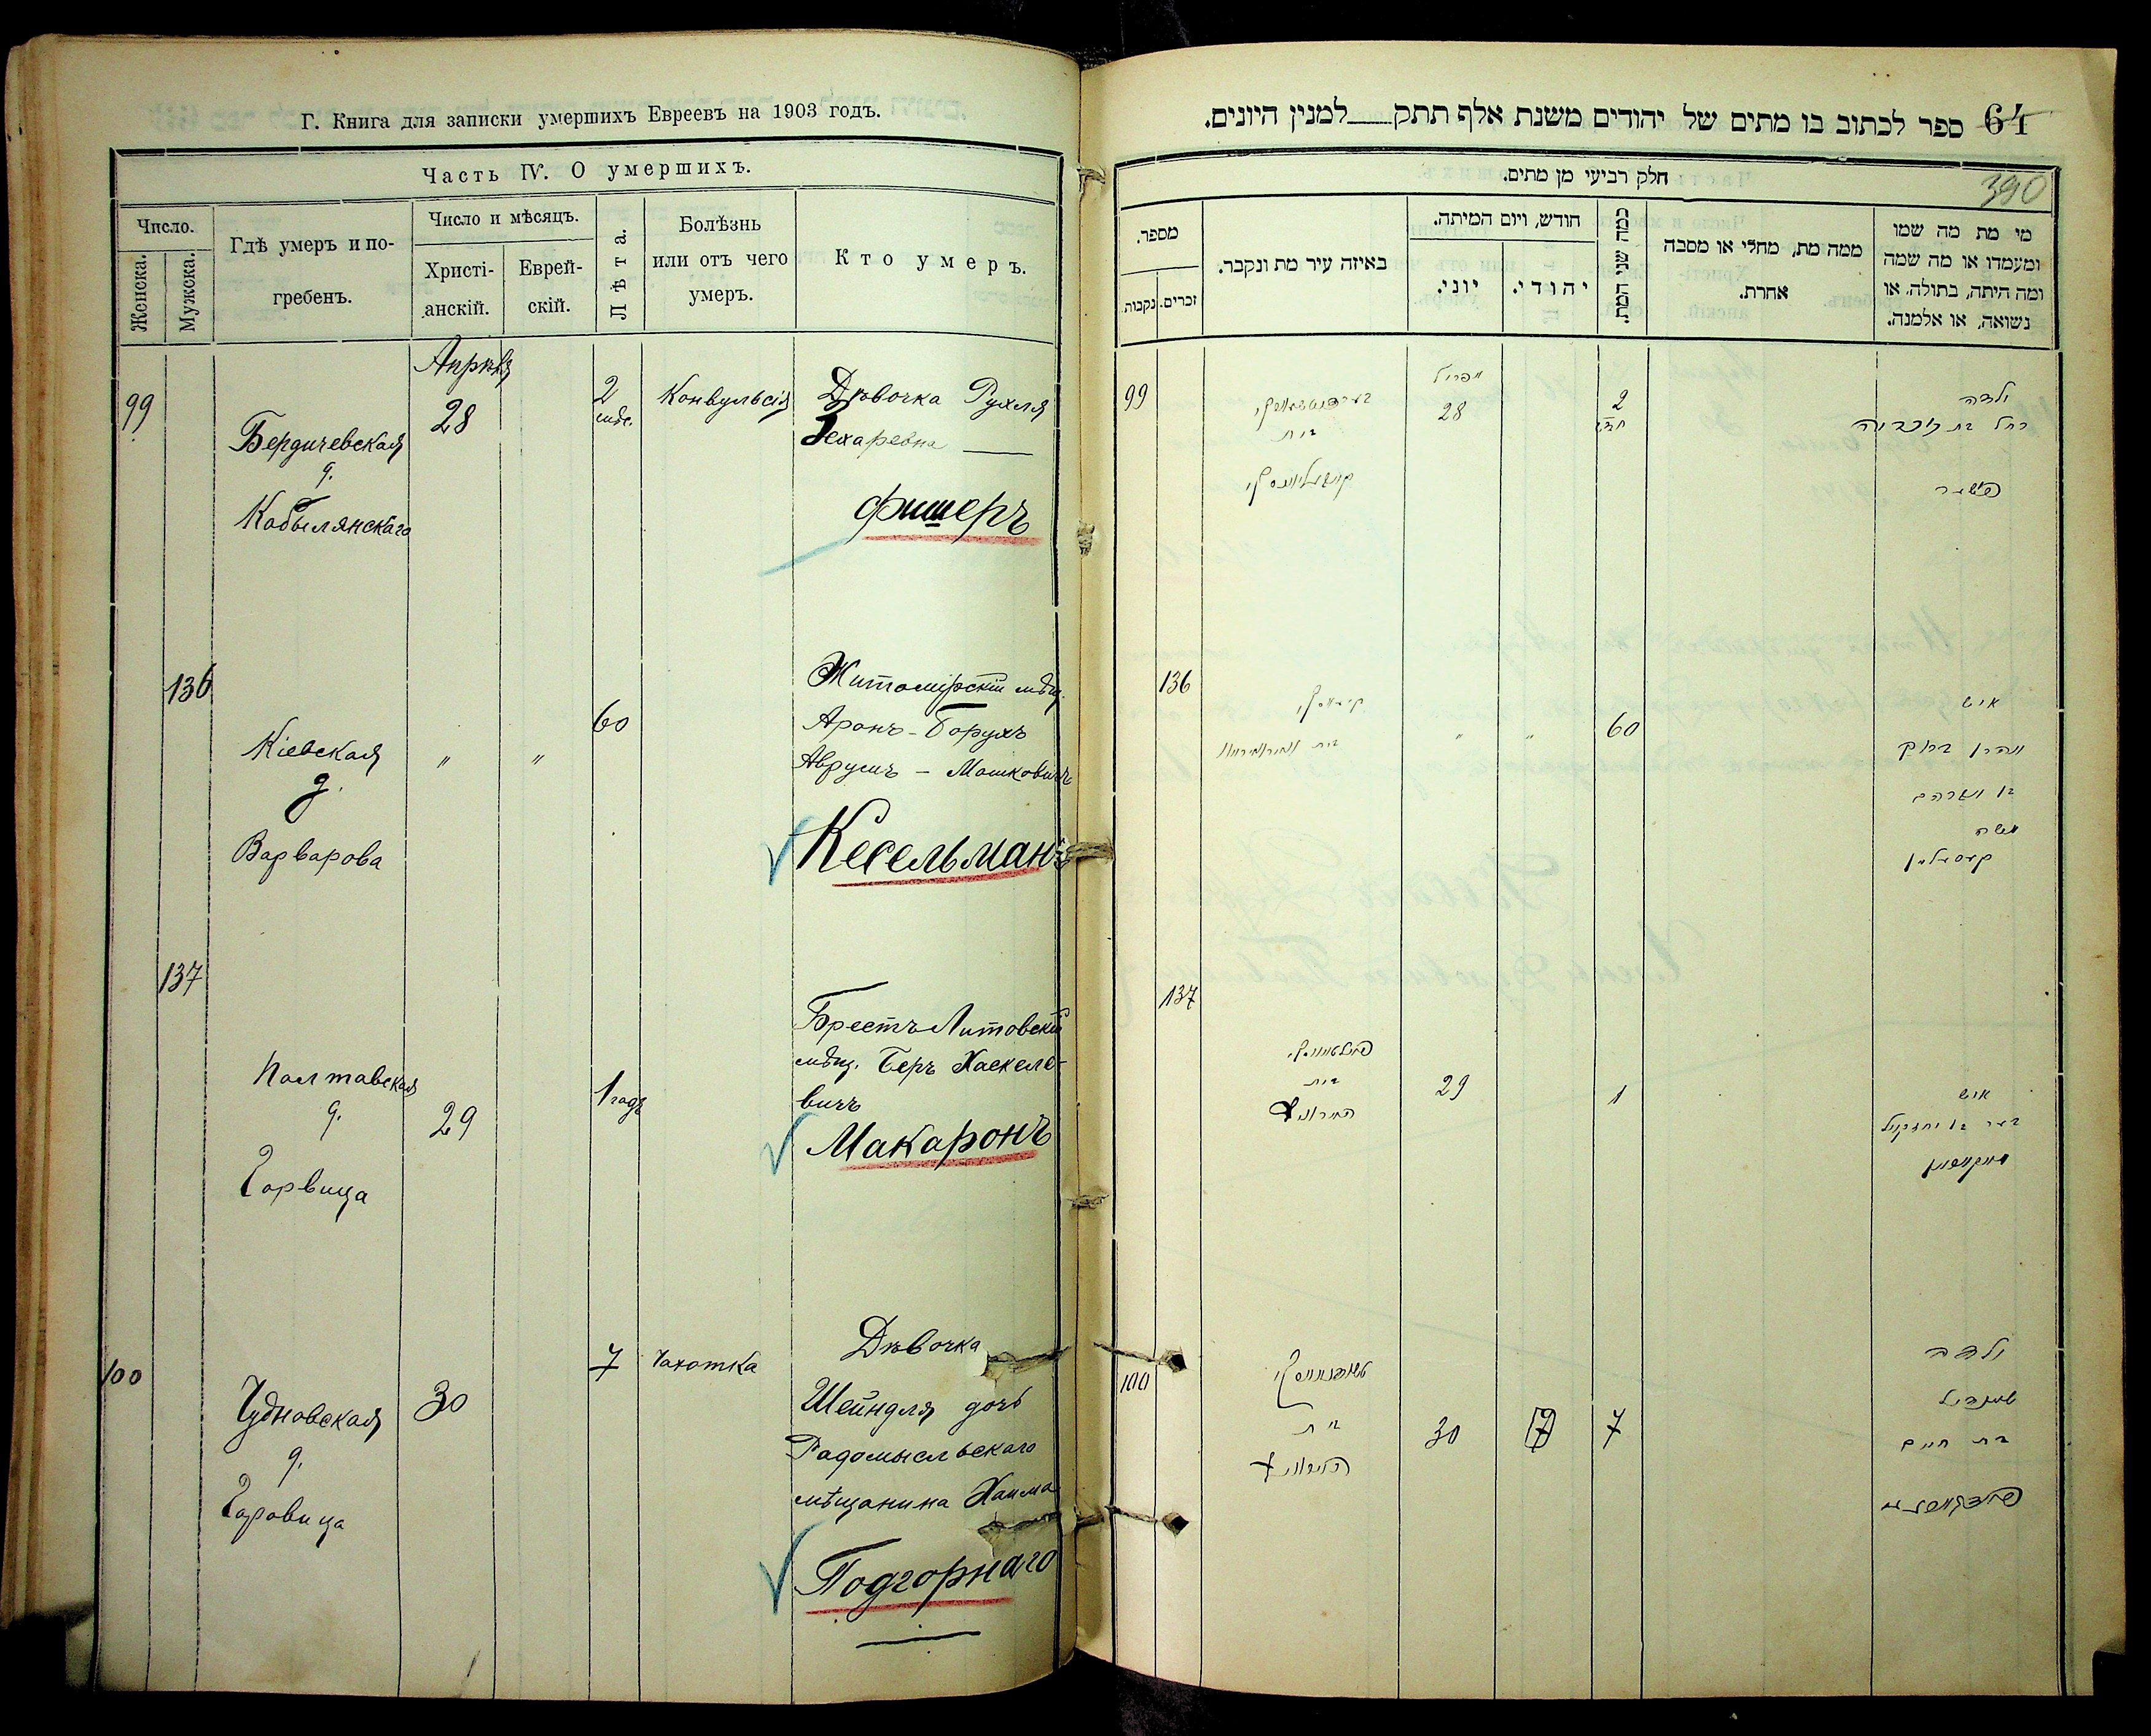 Г. Книга для записки умершихъ Евреевъ на 1903 годъ.
Часть IV. О умершихъ.
Число.
Женска.
Мужска.
Гдѣ умеръ и по-
гребенъ.
Число и мѣсяцъ.
Христі-
анскій.
Еврей-
скій.
Лѣта.
Болѣзнь
или отъ чего
умеръ.
Кто умеръ.
Апрѣля
99
Бердичевская
д.
Кобылянскаго
28
2
мѣс.
Конвульсія
Дѣвочка Рухля
Зехаревна
Фишеръ
136
Кіевская
д.
Варварова
"
"
60
Житомірскій мѣщ.
Аронъ-Борухъ
Аврумъ-Мошковичъ
Кесельманъ
137
Полтавская
д.
Горвица
29
1 годъ
Брестъ Литовскій
мѣщ. Беръ Хаскеле-
вичъ
Макаронъ
100
Чудновская
д.
Горовица
30
7
Чахотка
Дѣвочка
Шейндля дочь
Радомысльскаго
мѣщанина Хаима
Подгорнаго
64
ספר לכתוב בו מתים של יהודים משנת אלף תתק למנין היונים.
390
חלק רביעי מן מתים.
מספר.
נקבות.
זכרים.
באיזה עיר מת ונקבר.
חודש, ויום המיתה.
יוני.
יהודי.
כמה שני המת.
ממה מת, מחלי או מסבה
אחרת.
מי מת מה שמו
ומעמדו או מה שמה
ומה היתה, בתולה, או
נשואה, או אלמנה.
99
בית
אפריל
28
2
ילדה
רחל בת זכריה
פישער
136
בית
"
"
60
איש
אהרן ברוך
בן אברהם
משה
קעסעלמן
137
בית
29
1
איש
בער בן יחזקאל
מאקאראן
100
בית
30
7
7
ילדה
שיינדיל
בת חיים